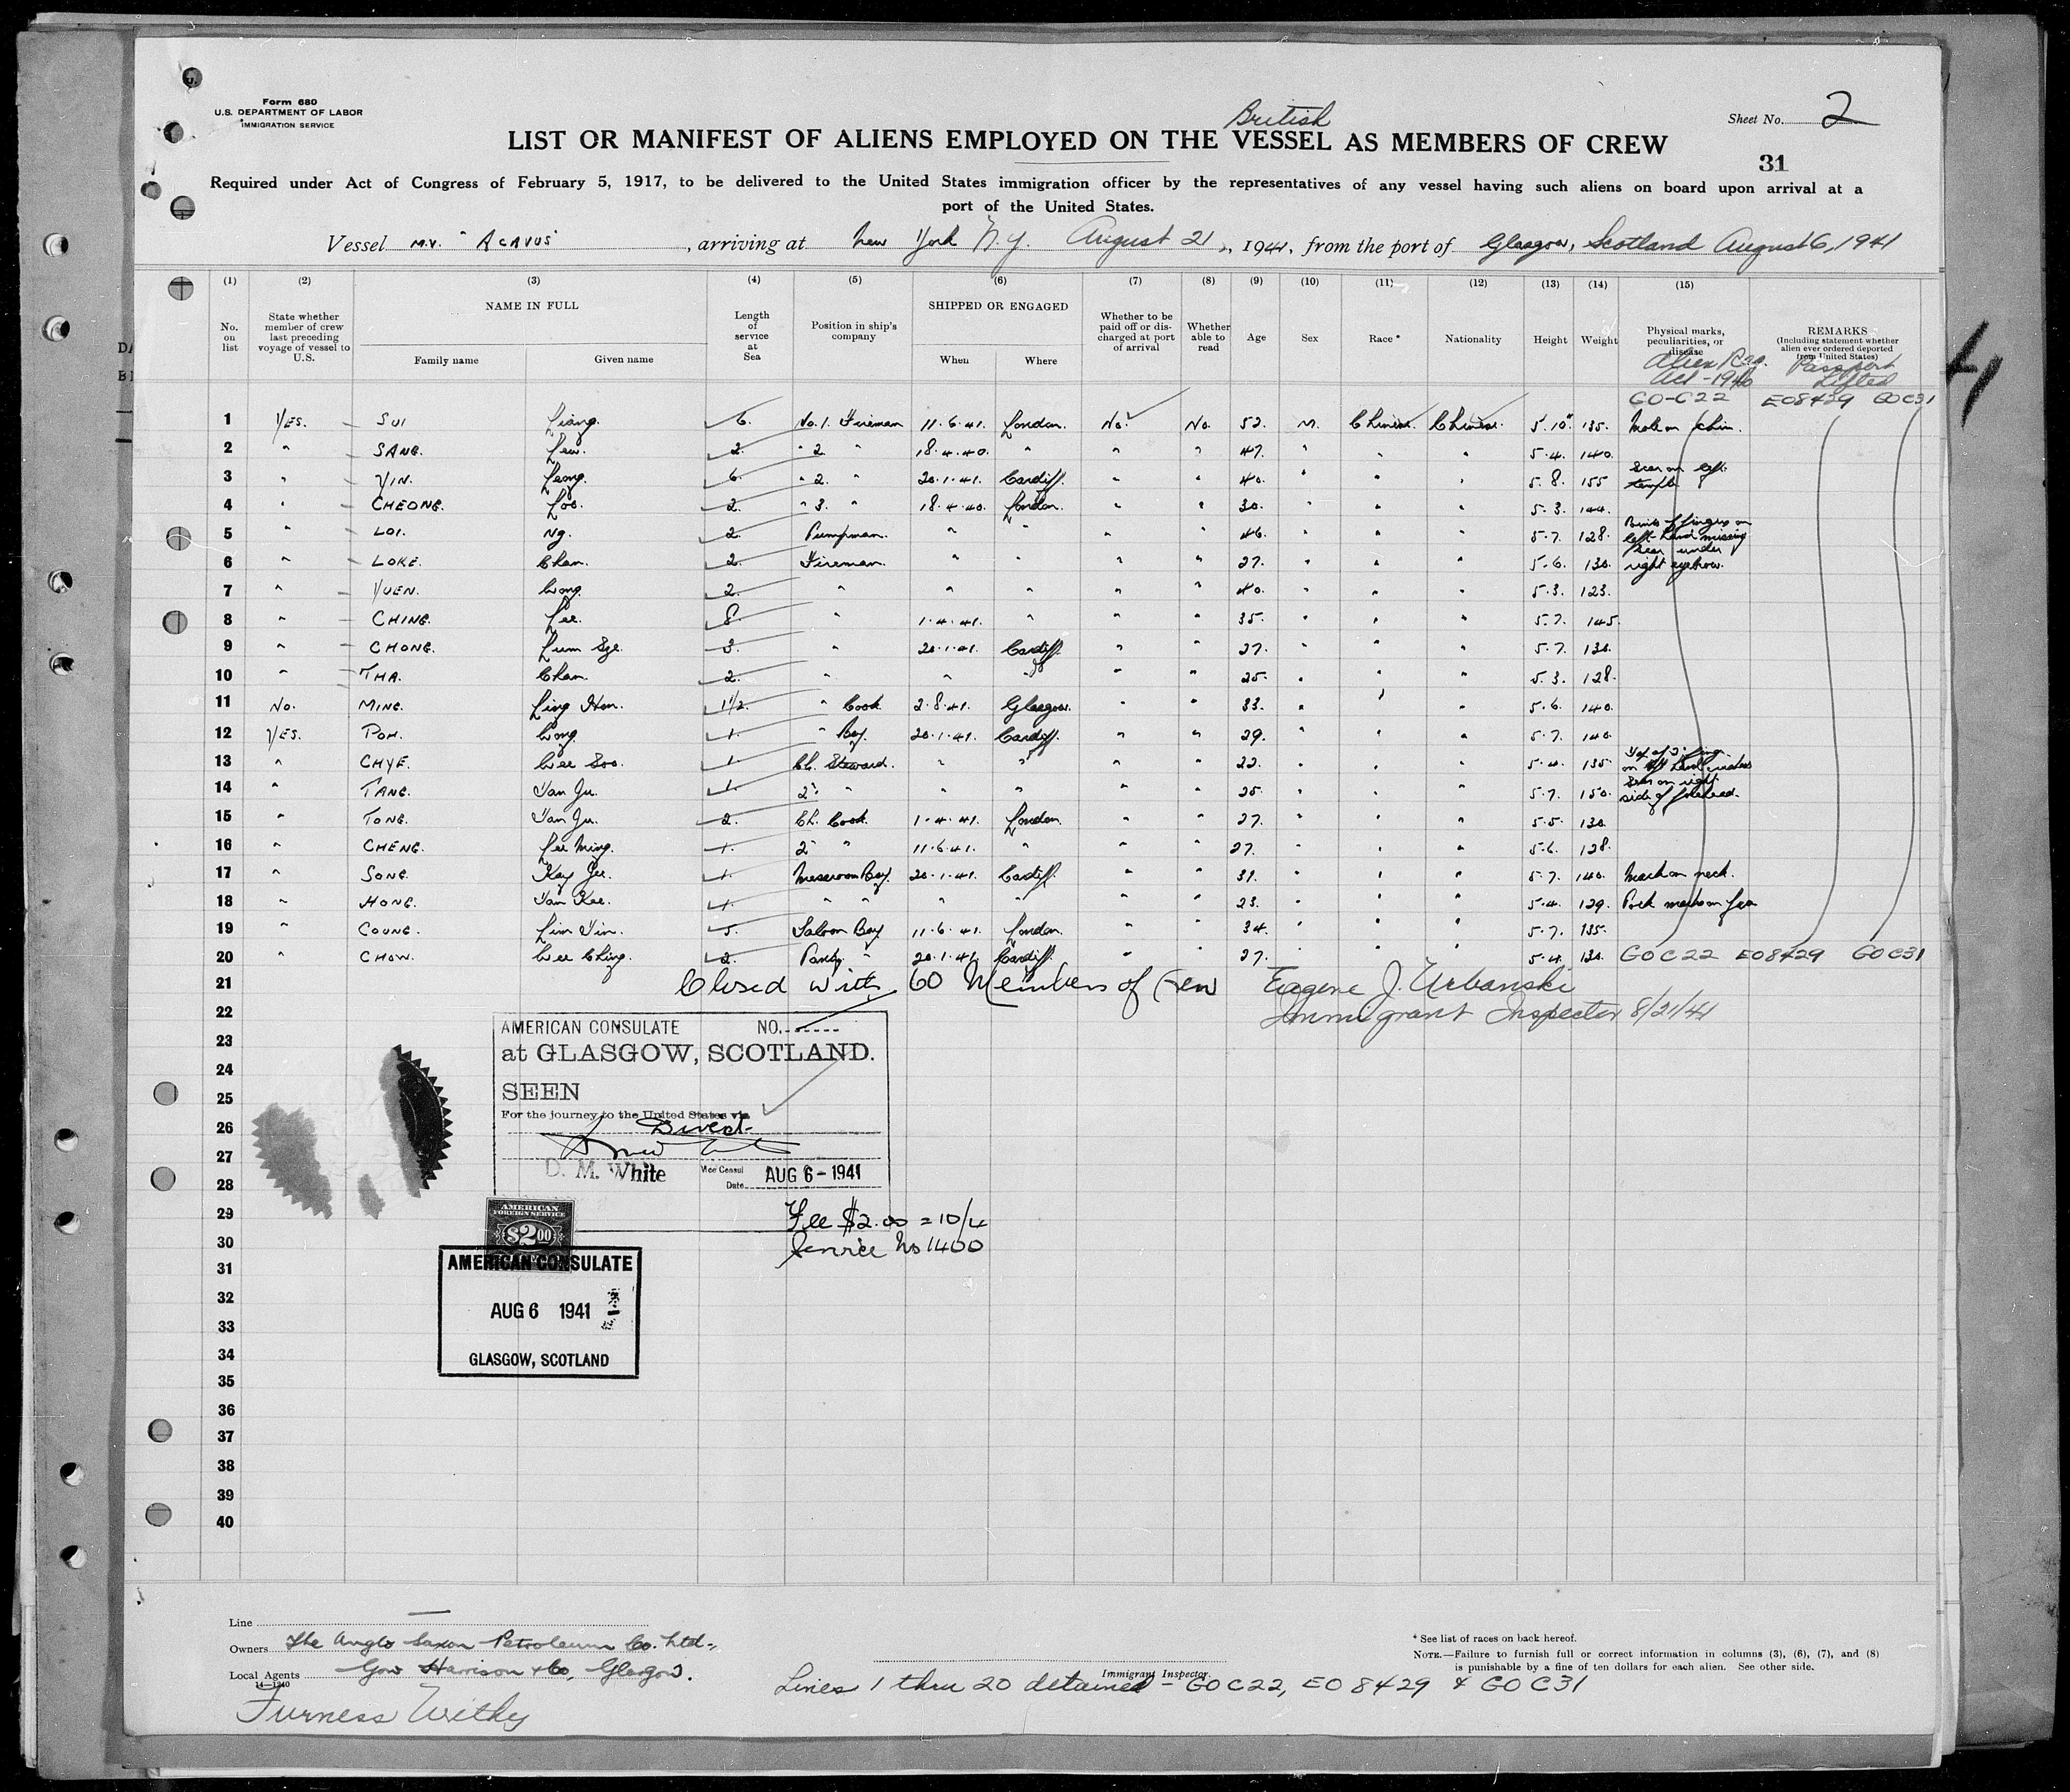 Form 680
U.S. DEPARTMENT OF LABOR
IMMIGRATION SERVICE
British
Sheet No. 2
LIST OR MANIFEST OF ALIENS EMPLOYED ON THE VESSEL AS MEMBERS OF CREW
31
Required under Act of Congress of February 5, 1917, to be delivered to the United States immigration officer by the representatives of any vessel having such aliens on board upon arrival at a
port of the United States.
Vessel M.V. "ACAVUS", arriving at New York N.Y. August 21, 1941, from the port of Glasgow, Scotland August 6, 1941
(1) (2) (3) (4) (5) (6) (7) (8) (9) (10) (11) (12) (13) (14) (15)
No. on list
State whether member of crew last preceding voyage of vessel to U.S.
NAME IN FULL
Family name
Given name
Length of service at Sea
Position in ship's company
SHIPPED OR ENGAGED
When
Where
Whether to be paid off or discharged at port of arrival
Whether able to read
Age
Sex
Race *
Nationality
Height
Weight
Physical marks, peculiarities, or disease
REMARKS
(Including statement whether alien ever ordered deported from United States)
Alien Reg. Act-1940
Passport Lifted
GO-C22 EO8429 GOC31
1 YES. SUI Liang. 6. No. 1. Fireman 11.6.41. London. No. No. 52. M. Chinese. Chinese. 5.10" 135. Mole on chin.
2 " SANG. Lew. 2. " 2 " 18.4.40. " " " 47. " " " 5.4. 140.
3 " YIN. Leong. 6. " 2. " 20.1.41. Cardiff. " " 40. " " " 5.8. 155 Scar on left temple
4 " CHEONG. Loo. 2. " 3. " 18.4.40. London. " " 30. " " " 5.3. 144.
5 " LOI. Ng. 2. Pumpman. " " " " 46. " " " 5.7. 128. fingers on left hand missing
6 " LOKE. Chan. 2. Fireman. " " " " 27. " " " 5.6. 130. Scar under right eyebrow.
7 " YUEN. Wong. 2. " " " " " 40. " " " 5.3. 123.
8 " CHING. Lee. 8. " 1.4.41. " " " 35. " " " 5.7. 145.
9 " CHONG. Lum Sze. 3. " 20.1.41. Cardiff. " " 27. " " " 5.7. 130.
10 " THA. Chan. 2. " " " " " 25. " " " 5.3. 128.
11 No. MING. Ling Hon. 1½. " Cook 2.8.41. Glasgow. " " 33. " " " 5.6. 140.
12 YES. POH. Wong 1. " Boy. 20.1.41. Cardiff. " " 29. " " " 5.7. 140.
13 " CHYE. Wee Soo. 1. Ch. Steward. " " " " 22. " " " 5.4. 135.
14 " TANG. Yan Ju. 1. 2" " " " " " 25. " " " 5.7. 150. Scar on right side of forehead.
15 " TONG. Yan Ju. 2. Ch. Cook. 1.4.41. London. " " 27. " " " 5.5. 130.
16 " CHENG. Lee Ming. 1. 2" " 11.6.41. " " " 27. " " " 5.6. 128.
17 " SONG. Kay Jee. 1. Messroom Boy. 20.1.41. Cardiff. " " 31. " " " 5.7. 140. Mark on neck.
18 " HONG. Yan Kee. 1. " " " " " " 23. " " " 5.4. 129. Pock marks on face
19 " COUNG. Lim Yin. 5. Saloon Boy 11.6.41. London. " " 34. " " " 5.7. 135.
20 " CHOW. Wee Ching. 2. Pantry " 20.1.41. Cardiff. " " 27. " " " 5.4. 130. GOC22 EO8429 GOC31
21 Closed with 60 Members of Crew Eugene J. Urbanski
22 Immigrant Inspector 8/21/41
23
24
25
26
27
28
29
30
31
32
33
34
35
36
37
38
39
40
AMERICAN CONSULATE NO.
at GLASGOW, SCOTLAND.
SEEN
For the journey to the United States via
Direct
D. M. White Vice Consul
Date AUG 6 - 1941
Fee $2.00 = 10/4
Service No 1400
AMERICAN
FOREIGN SERVICE
$2.00
AMERICAN CONSULATE
AUG 6 1941
GLASGOW, SCOTLAND
Line —
Owners The Anglo Saxon Petroleum Co. Ltd.
Local Agents Gow Harrison & Co, Glasgow.
14—1240
Furness Withy
Immigrant Inspector.
Lines 1 thru 20 detained - GOC22, EO 8429 & GOC31
* See list of races on back hereof.
NOTE.—Failure to furnish full or correct information in columns (3), (6), (7), and (8)
is punishable by a fine of ten dollars for each alien. See other side.